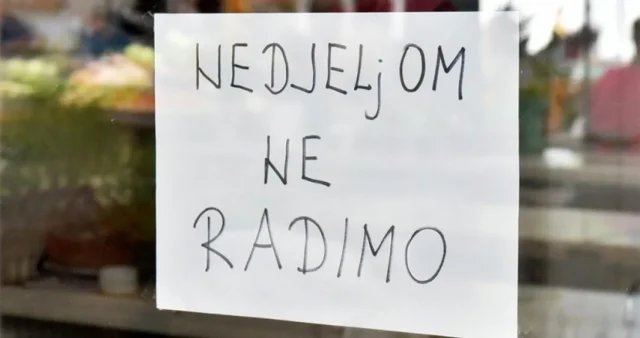 NEDJELjOM
NE
RADIMO